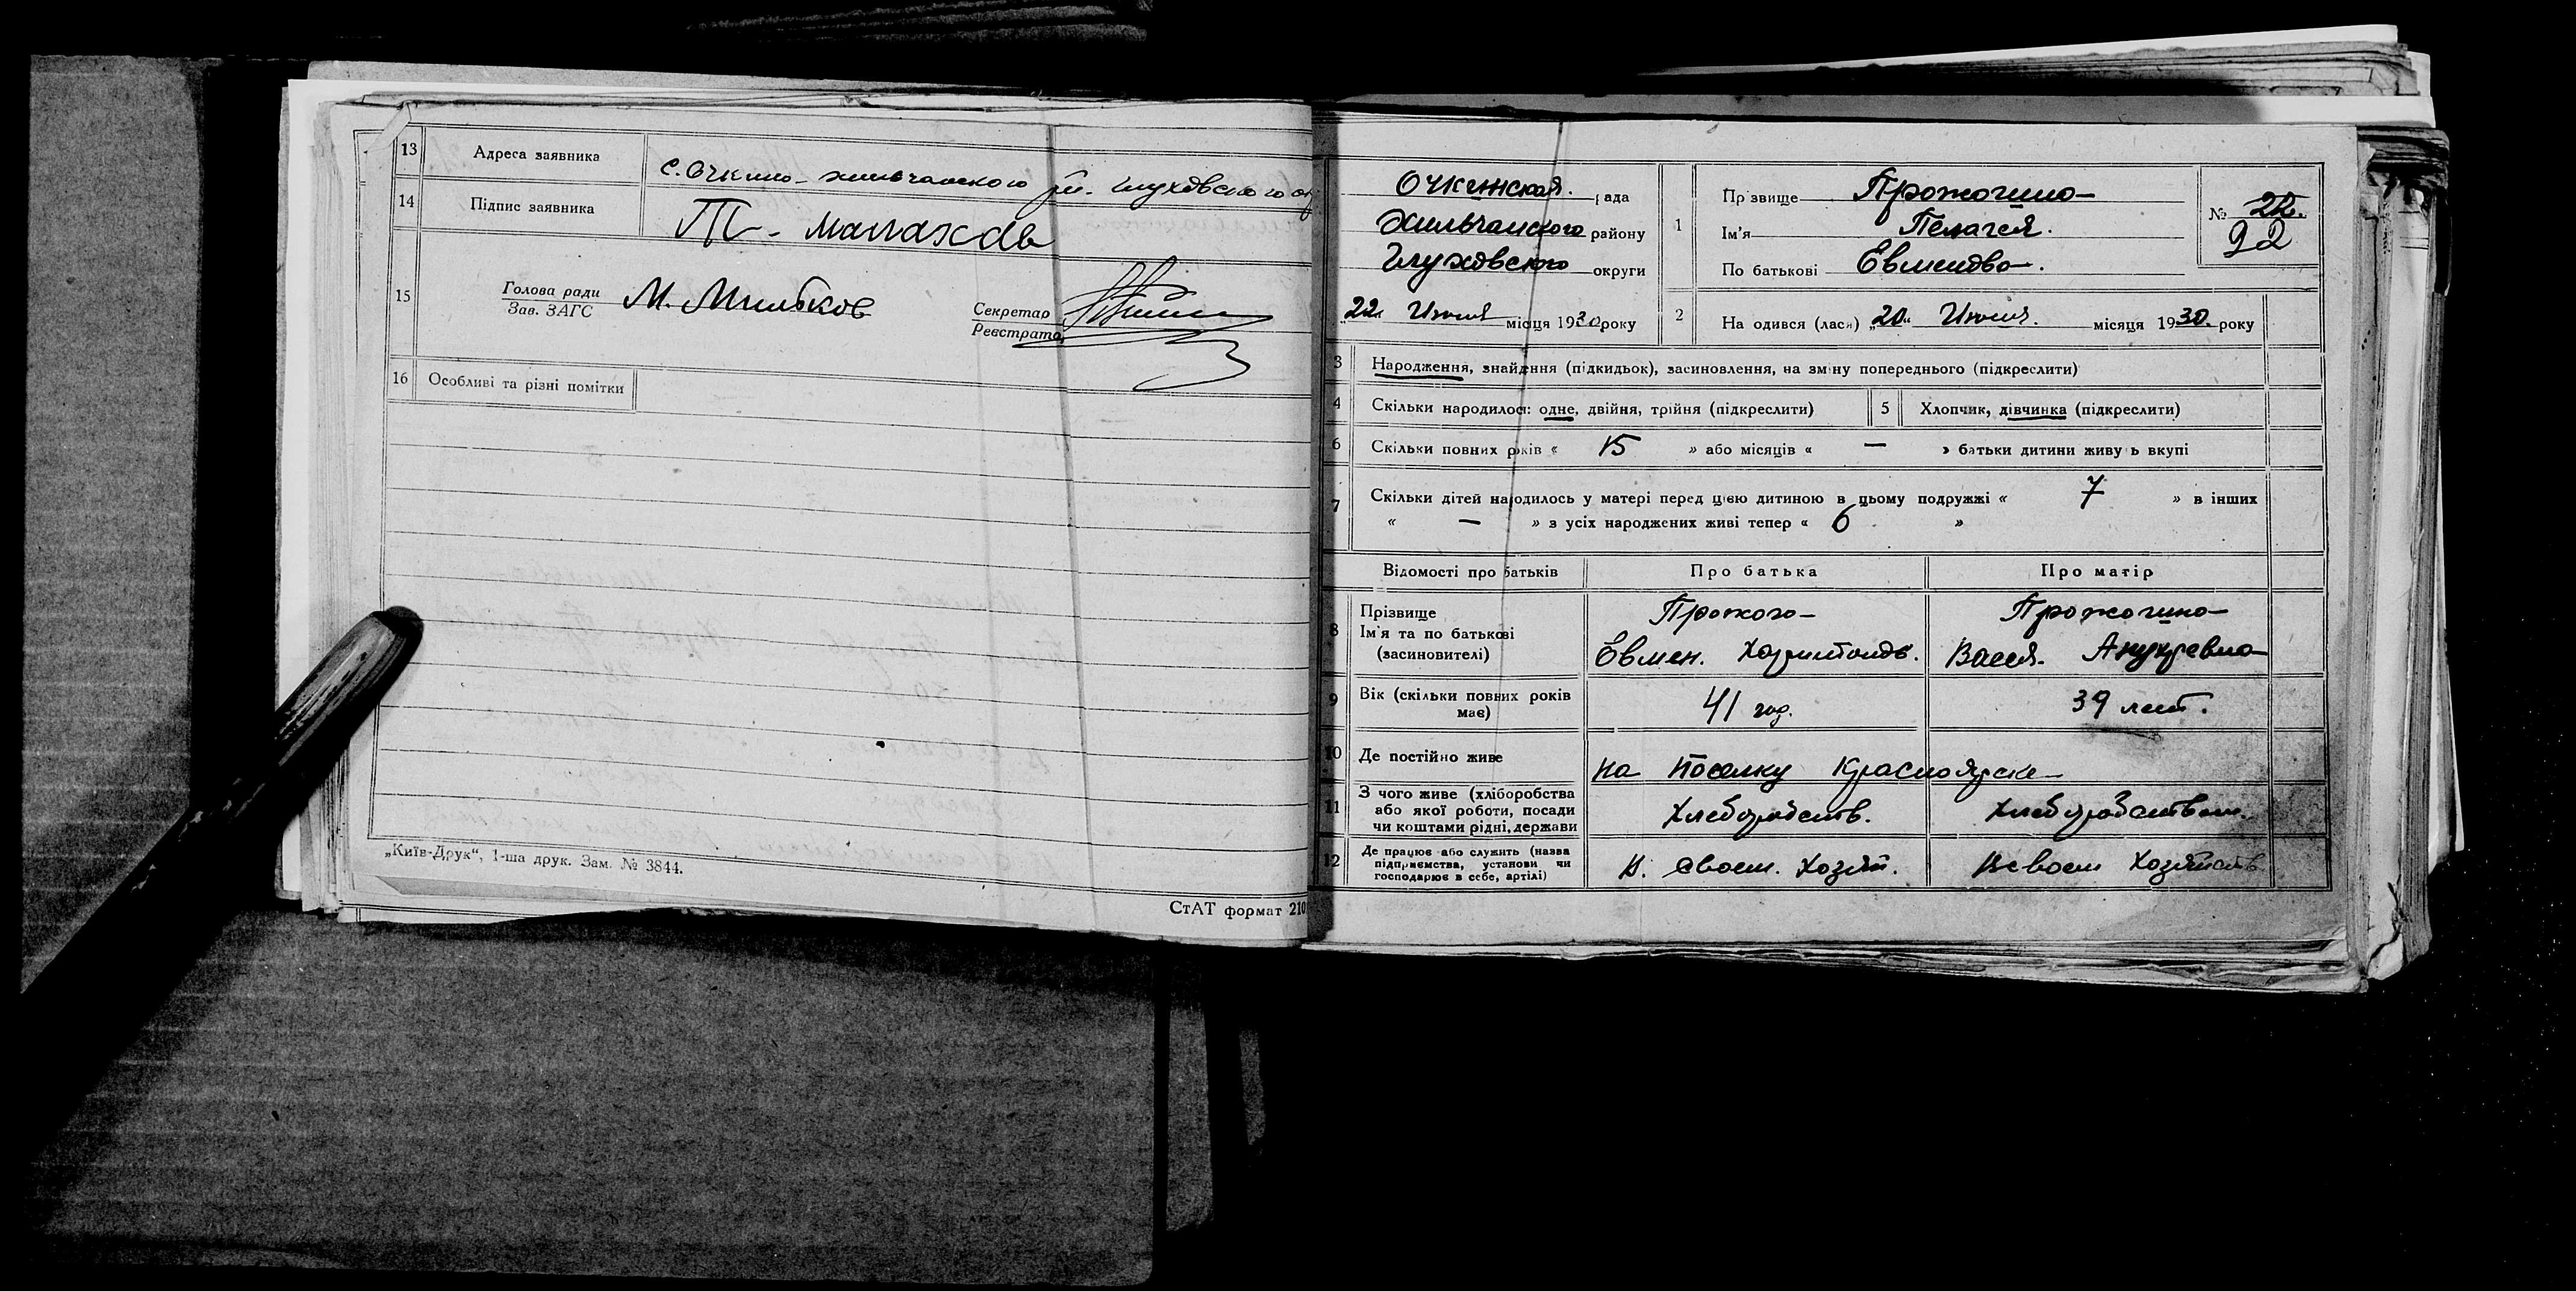 13 Адреса заявника с. Очкино Хильчанского р. Глуховского ок
14 Підпис заявника Т. Малахов
15 Голова ради М. Мильков Секретар
Зав. ЗАГС Реєстратор
16 Особливі та різні помітки
„Київ-Друк“, 1-ша друк. Зам. № 3844.
СтАТ формат 210
Очкинская. рада
Хильчанского району
Глуховского округи
„22„ Июля місяця 1930 року
1 Прізвище Прожогина
Ім'я Пелагея.
По батькові Евменова.
№ 22.
92
2 Народився (лася) „20„ Июля. місяця 1930. року
3 Народження, знайдення (підкидьок), засиновлення, на зміну попереднього (підкреслити)
4 Скільки народилося: одне, двійня, трійня (підкреслити) 5 Хлопчик, дівчинка (підкреслити)
6 Скільки повних років « 15 » або місяців « — » батьки дитини живуть вкупі
7 Скільки дітей народилось у матері перед цією дитиною в цьому подружжі « 7 » в інших
« — » з усіх народжених живі тепер « 6 »
Відомості про батьків Про батька Про матір
8 Прізвище Прожога Прожогина
Ім'я та по батькові
(засиновителі) Евмен. Харитонов. Васся.
9 Вік (скільки повних років має) 41 год. 39 лет.
10 Де постійно живе на поселку Красноярске
11 З чого живе (хліборобства
або якої роботи, посади
чи коштами рідні, держави Хлебородств. Хлебородством.
12 Де працює або служить (назва
підприємства, установи чи
господарює в себе, артілі) В. своем. Хозяй. В своем Хозяйств